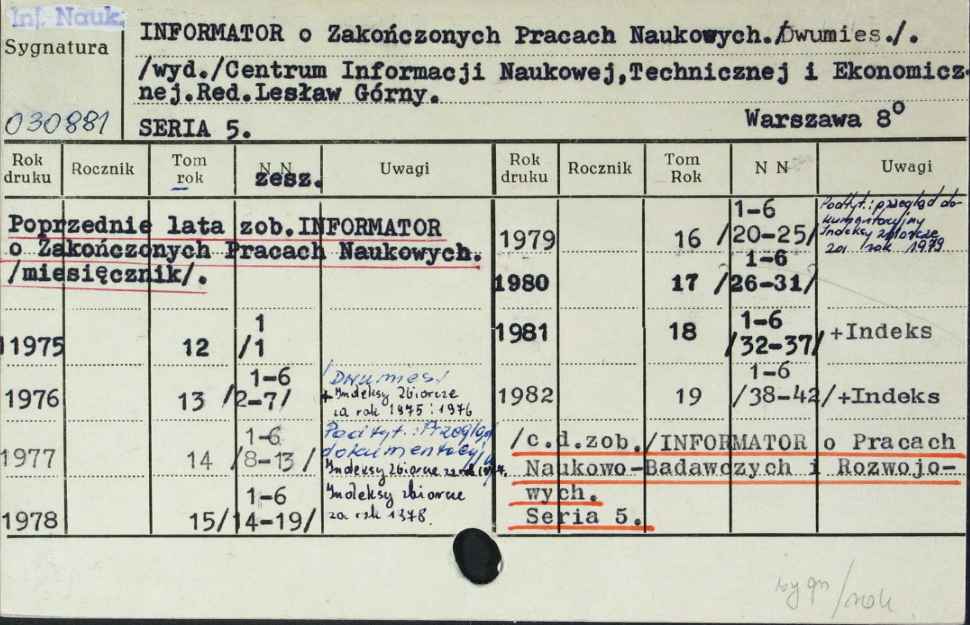 Inf. Nauk.
Sygnatura
030881
INFORMATOR o Zakończonych Pracach Naukowych./Dwumies./.
/wyd./Centrum Informacji Naukowej,Technicznej i Ekonomicz-
nej.Red.Lesław Górny.
SERIA 5.
Warszawa 8°
Rok druku Rocznik Tom rok N N zesz. Uwagi
Poprzednie lata zob.INFORMATOR
o Zakończonych Pracach Naukowych.
/miesięcznik/.
1975 12 1 /1
1976 13 1-6 /2-7/ /Dwumies./
+ Indeksy zbiorcze
za rok 1975 i 1976
1977 14 1-6 /8-13/ Podtyt.: Przegląd
dokumentacyjny
Indeksy zbiorcze za rok 1977.
1978 15 1-6 /14-19/ Indeksy zbiorcze
za rok 1978.
Rok druku Rocznik Tom Rok N N Uwagi
1979 16 1-6 /20-25/ Podtyt.: przegląd do-
kumentacyjny
Indeksy zbiorcze
za rok 1979
1980 17 1-6 /26-31/
1981 18 1-6 /32-37/ +Indeks
1982 19 1-6 /38-42/ +Indeks
/c.d.zob./INFORMATOR o Pracach
Naukowo-Badawczych i Rozwojo-
wych.
Seria 5.
sygn/rok